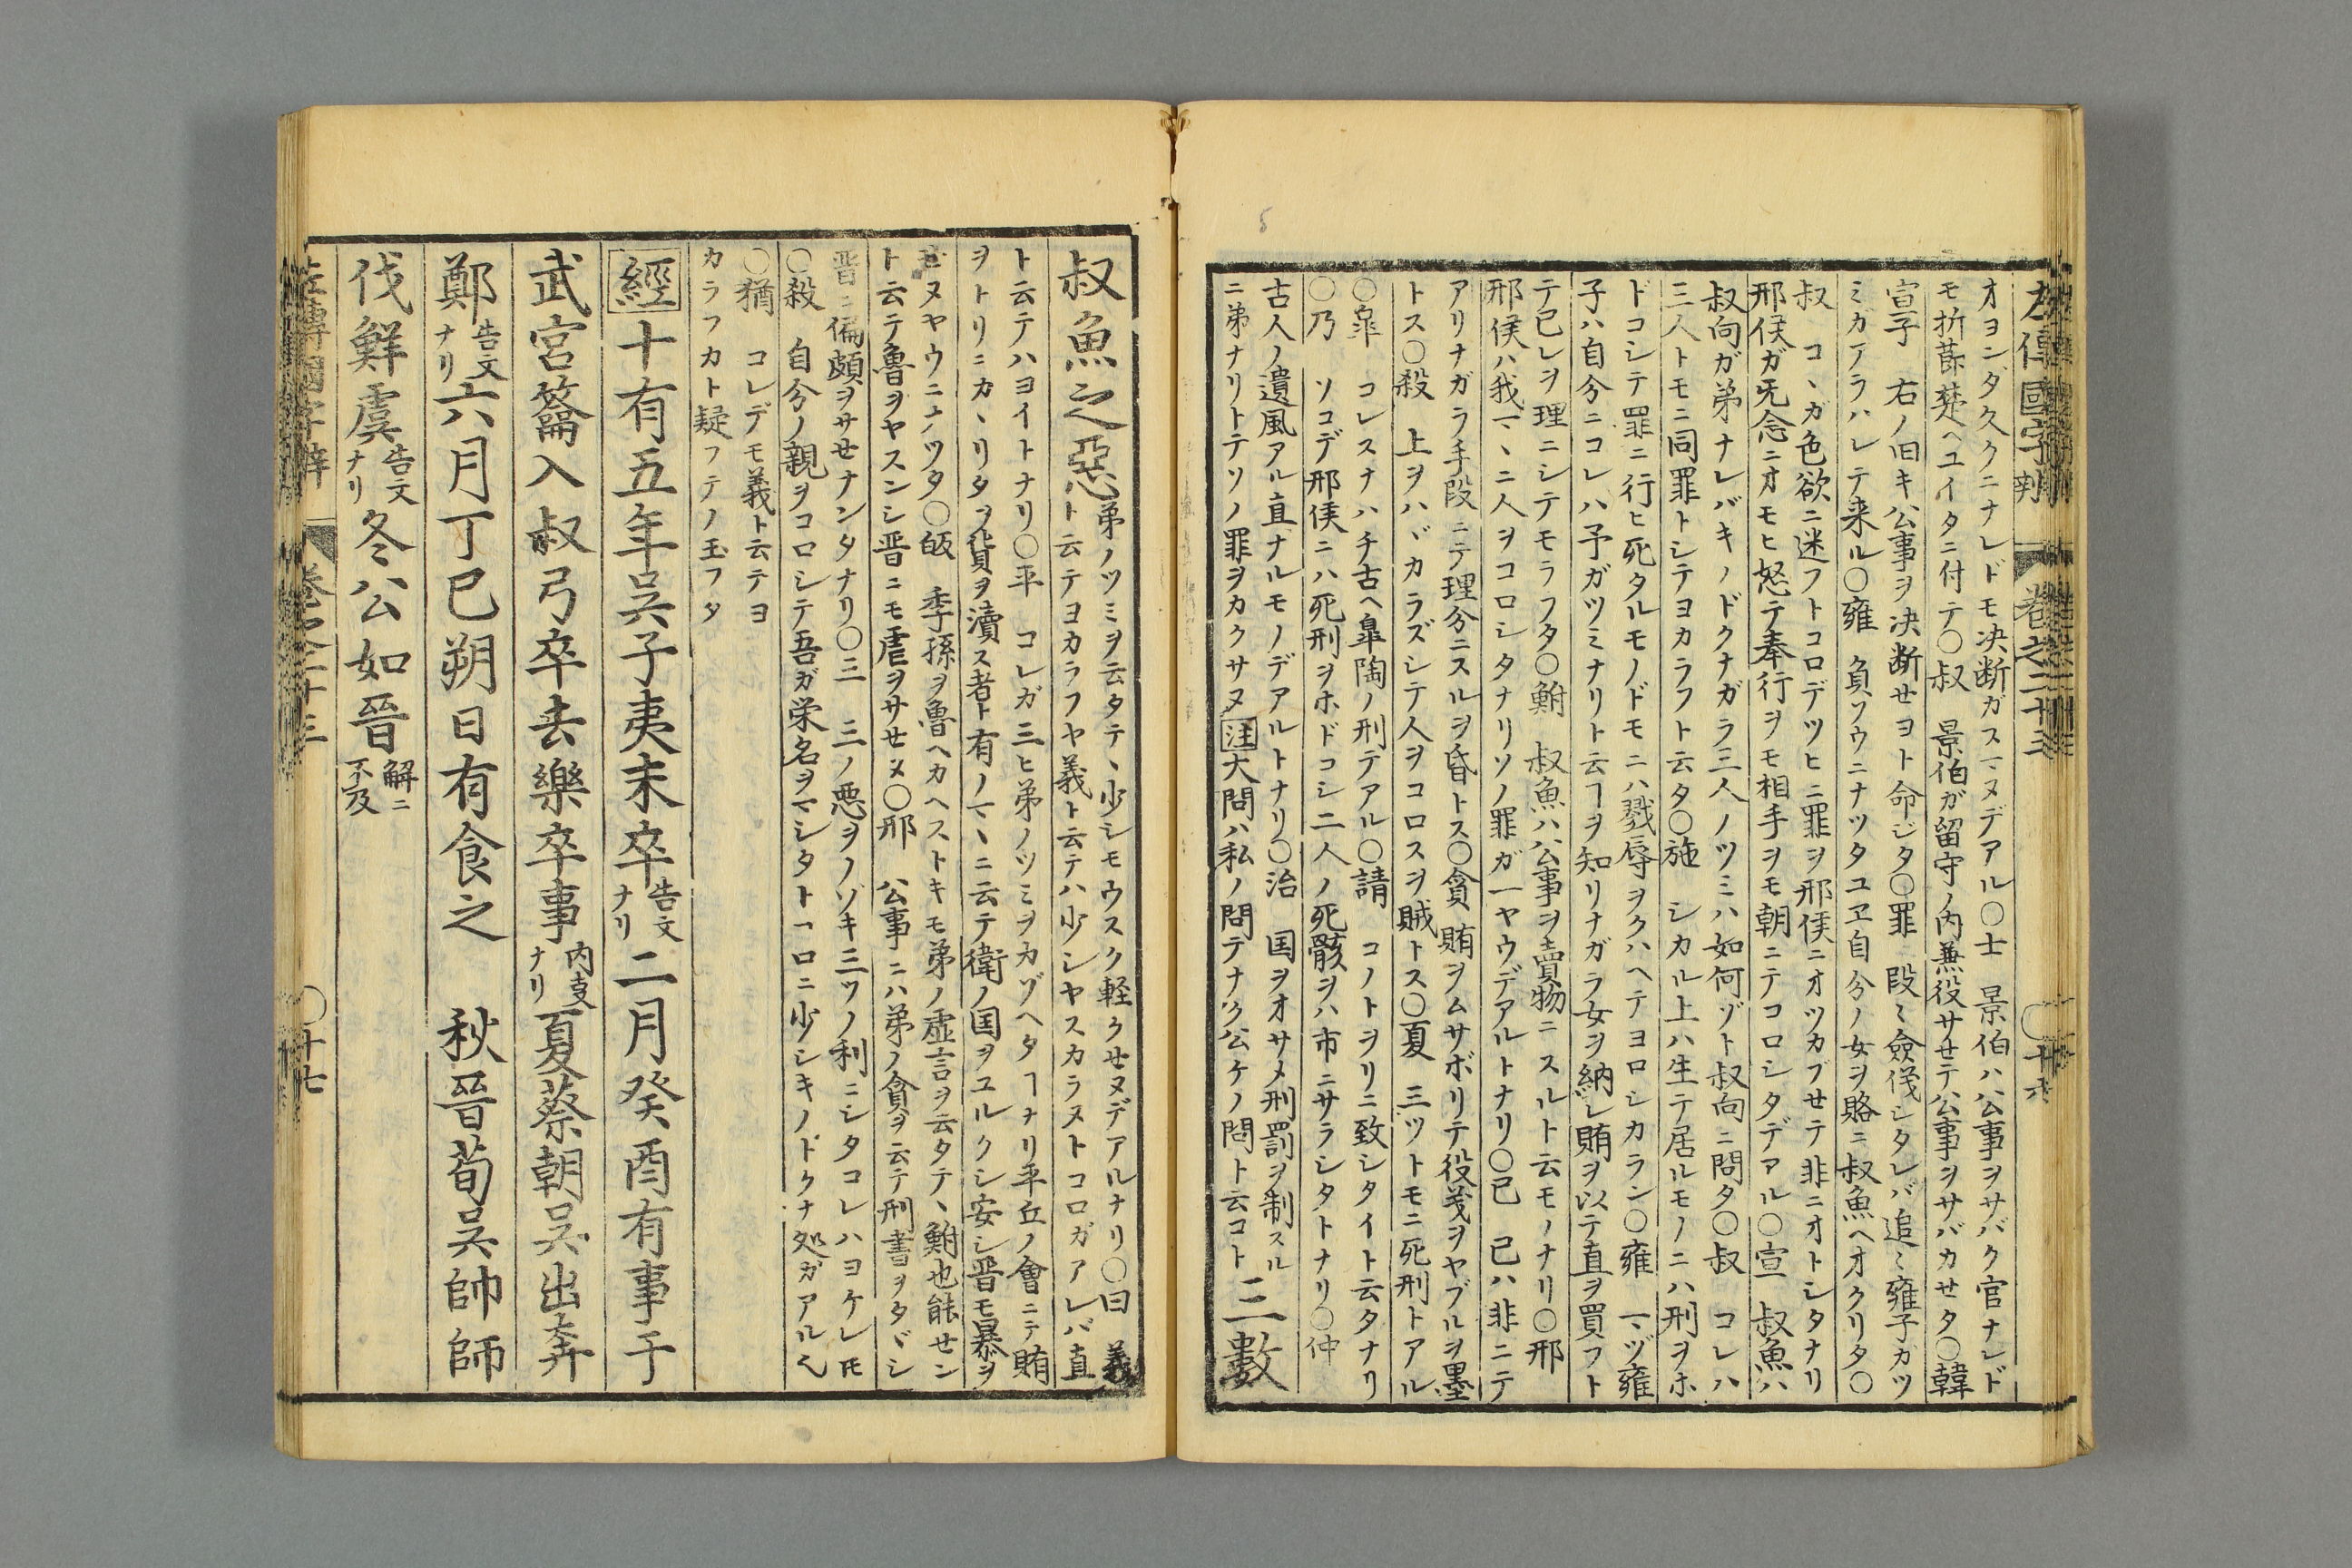 左傳國字辨 卷之二十三 〇十六
オヨンダ久クニナレドモ决断ガスマヌデアル〇士 景伯ハ公事ヲサバク官ナレド
モ折節楚ヘユイタニ付テ〇叔 景伯ガ留守ノ内兼役サセテ公事ヲサバカセタ〇韓
宣子 右ノ旧キ公事ヲ决断セヨト命ジタ〇罪 段〻僉議シタレバ追〻雍子カツ
ミガアラハレテ来ル〇雍 負ソウニナツタユヱ自分ノ女ヲ賂ニ叔魚ヘオクリタ〇
叔 コヽガ色欲ニ迷フトコロデツヒニ罪ヲ邢侯ニオツカブセテ非ニオトシタナリ
邢侯ガ旡念ニオモヒ怒テ奉行ヲモ相手ヲモ朝ニテコロシタデアル〇宣 叔魚ハ
叔向ガ弟ナレバキノドクナガラ三人ノツミハ如何ゾト叔向ニ問タ〇叔 コレハ
三人トモニ同罪トシテヨカラフト云タ〇施 シカル上ハ生テ居ルモノニハ刑ヲホ
ドコシテ罪ニ行ヒ死タルモノドモニハ戮辱ヲクハヘテヨロシカラン〇雍 マヅ雍
子ハ自分ニコレハ予ガツミナリト云ヿヲ知リナガラ女ヲ納レ賄ヲ以テ直ヲ買フト
テ已レヲ理ニシテモラフタ〇鮒 叔魚ハ公事ヲ賣物ニスルト云モノナリ〇邢
邢侯ハ我マヽニ人ヲコロシタナリソノ罪ガ一ヤウデアルトナリ〇已 已ハ非ニテ
アリナガラ手段ニテ理分ニスルヲ昏トス〇貪 賄ヲムサボリテ役義ヲヤブルヲ墨
トス〇殺 上ヲハヾカラズシテ人ヲコロスヲ賊トス〇夏 三ツトモニ死刑トアル
〇皐 コレスナハチ古ヘ皐陶ノ刑テアル〇請 コノトヲリニ致シタイト云タナリ
〇乃 ソコデ邢侯ニハ死刑ヲホドコシ二人ノ死骸ヲハ市ニサラシタトナリ〇仲
古人ノ遺風アル直ナルモノデアルトナリ〇治 国ヲオサメ刑罰ヲ制スル
ニ弟ナリトテソノ罪ヲカクサヌ 注 大問ハ私ノ問テナク公ケノ問ト云コト 三數
叔魚之惡 弟ノツミヲ云タテヽ少シモウスク軽クセヌデアルナリ〇曰 義
ト云テヨカラフヤ義ト云テハ少シヤスカラヌトコロガアレバ直
ト云テハヨイトナリ〇平 コレガ三ヒ弟ノツミヲカゾヘタヿナリ平丘ノ會ニテ賄
ヲトリニカヽリタヲ貨ヲ瀆ス者ト有ノマヽニ云テ衛ノ国ヲユルクシ安シ晋モ暴ヲ
セヌヤウニナツタ〇皈 季孫ヲ魯ヘカヘストキモ弟ノ虚言ヲ云タテヽ鮒也能セン
ト云テ魯ヲヤスンシ晋ニモ虐ヲサセヌ〇邢 公事ニハ弟ノ貪ヲ云テ刑書ヲタヾシ
晋ニ偏頗ヲサセナンタナリ〇三 三ノ悪ヲノゾキ三ツノ利ニシタコレハヨケレ𪜈
〇殺 自分ノ親ヲコロシテ吾ガ栄名ヲマシタトコロニ少シキノドクナ処ガアル也
〇猶 コレデモ義ト云テヨ
カラフカト疑フテノ玉フタ
經 十有五年呉子夷末卒 告文ナリ 二月癸酉有事于
武宮籥入叔弓卒去樂卒事 内㕝ナリ 夏蔡朝呉出奔
鄭 告文ナリ 六月丁巳朔日有食之 秋晉荀呉帥師
伐鮮虞 告文ナリ 冬公如晉 解ニ不及
左傳國字辨 卷之二十三 〇十七